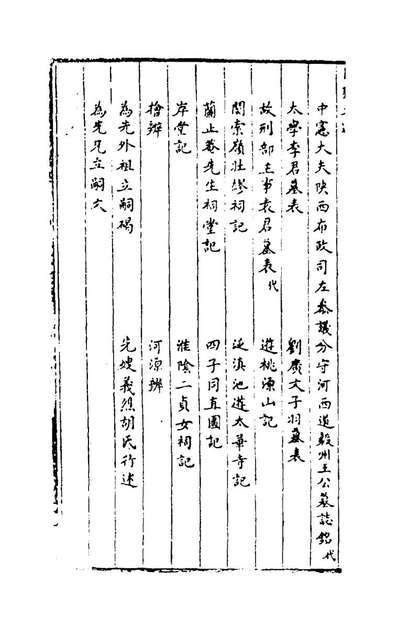 中憲大夫陝西布政司左參議分守河西道毅州王公墓誌銘代
太學李君墓表　劉廣文子羽墓表
故刑部主事袁君墓表代　遊桃源山記
關索嶺壯繆祠記　泛滇池遊太華寺記
蘭止菴先生祠堂記　四子同直園記
岸堂記　淮陰二貞女祠記
檜辨　河源辨
為先外祖立嗣碣　先嫂義烈胡氏行述
為先兄立嗣文